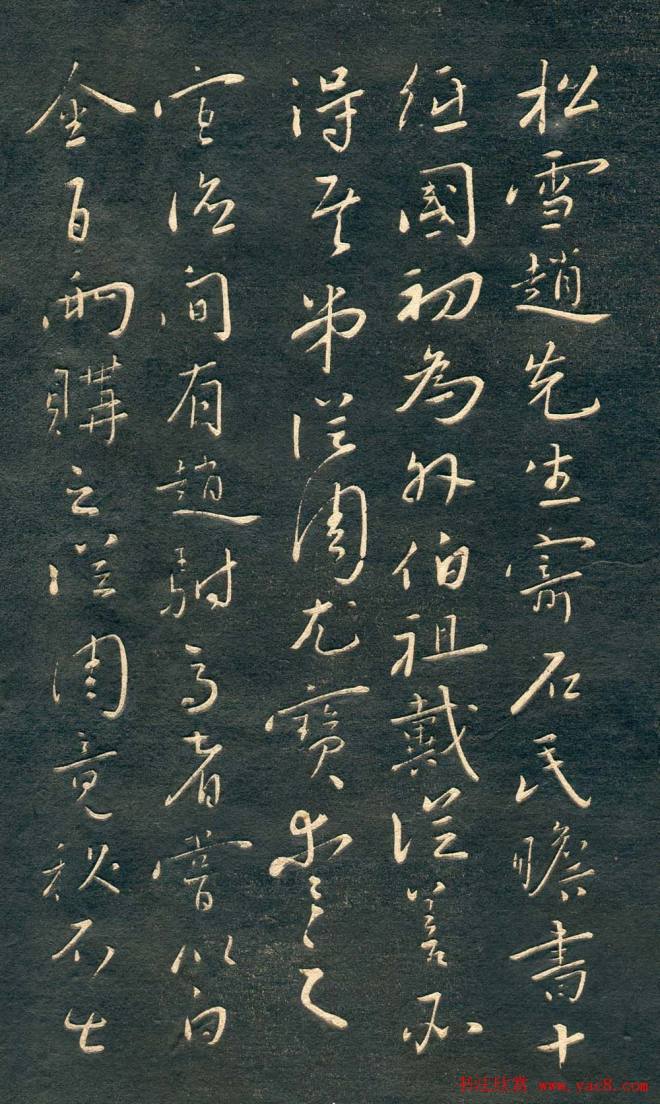 松雪趙先生寄石民瞻書十
紙國初為外伯祖戴從善所
得其弟從周尤寶愛之
宣德間有趙駙馬者嘗以白
金百兩購之從周竟秘不出
书法欣赏 www.yac8.com